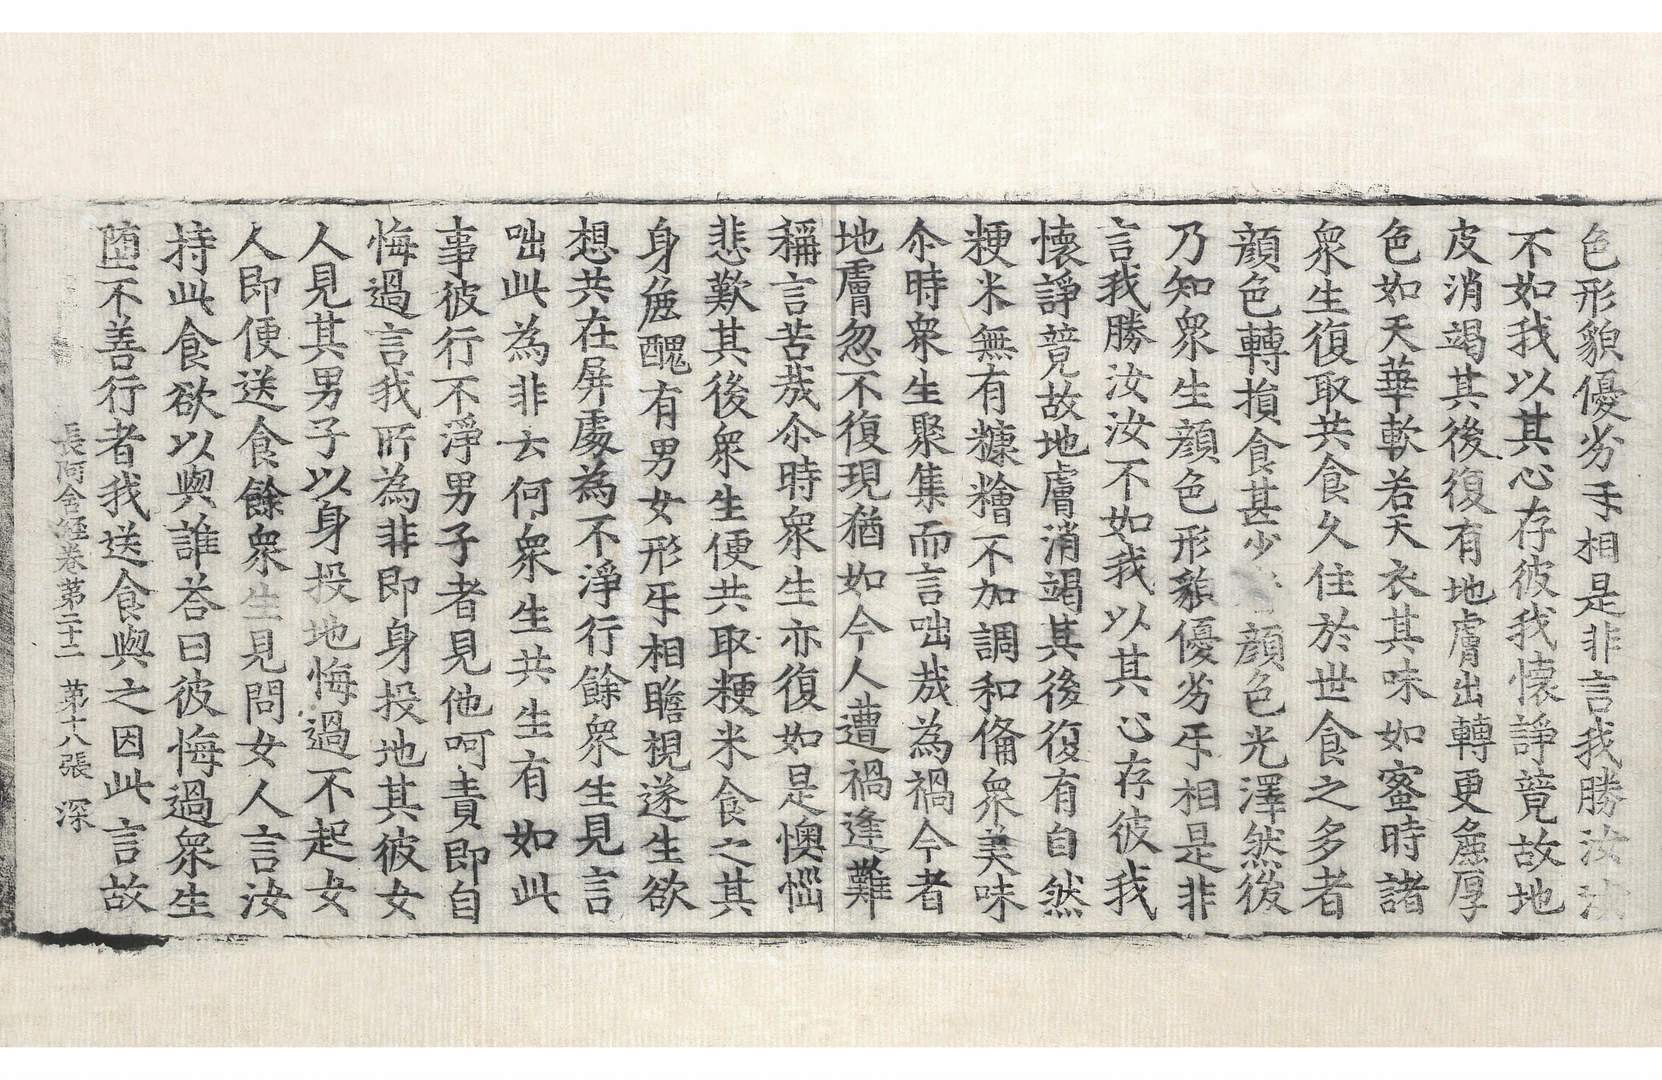 色形貌優劣手相是非言我勝汝汝
不如我以其心存彼我懷諍竟故地
皮消竭其後復有地膚出轉更麁厚
色如天華軟若天衣其味如蜜時諸
衆生復取共食久住於世食之多者
顔色轉損食甚少者顔色光澤然後
乃知衆生顔色形貌優劣乎相是非
言我勝汝汝不如我以其心存彼我
懷諍竟故地膚消竭其後復有自然
粳米無有糠糩不加調和俻衆美味
尒時衆生聚集而言咄哉為禍今者
地膚忽不復現猶如今人遭禍逢難
稱言苦哉尒時衆生亦復如是懊惱
悲歎其後衆生便共取粳米食之其
身麁醜有男女形乎相瞻視遂生欲
想共在屏處為不淨行餘衆生見言
咄此為非去何衆生共生有如此
事彼行不淨男子者見他呵責即自
悔過言我所為非即身投地其彼女
人見其男子以身投地悔過不起女
人即便送食餘衆生見問女人言汝
持此食欲以與誰荅曰彼悔過衆生
堕不善行者我送食與之因此言故
長阿含經卷第二十二　第十八張　深